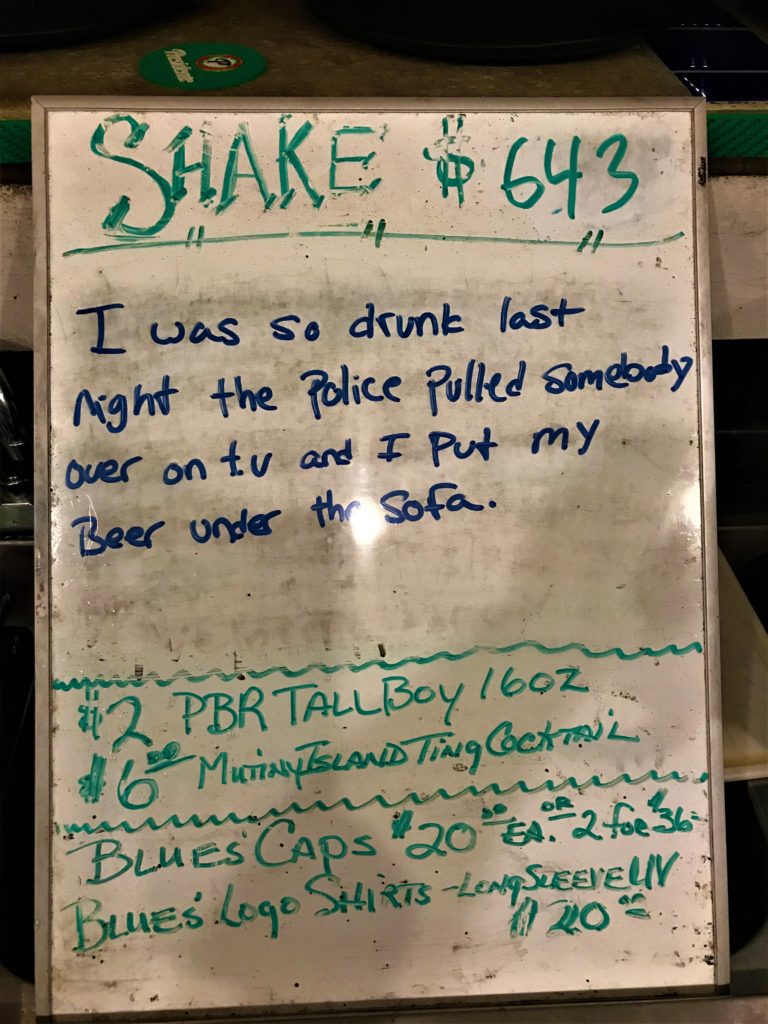 SHAKE $ 643
I was so drunk last
night the Police Pulled Somebody
over on t.v and I Put my
Beer under the Sofa.
$2 PBR TALL BOY 16OZ
$6.00 MUTINY ISLAND TING COCKTAIL
BLUES' CAPS $20.00 EA. OR 2 FOR $36-
BLUES' LOGO SHIRTS - LONG SLEEVE UV
$20.00